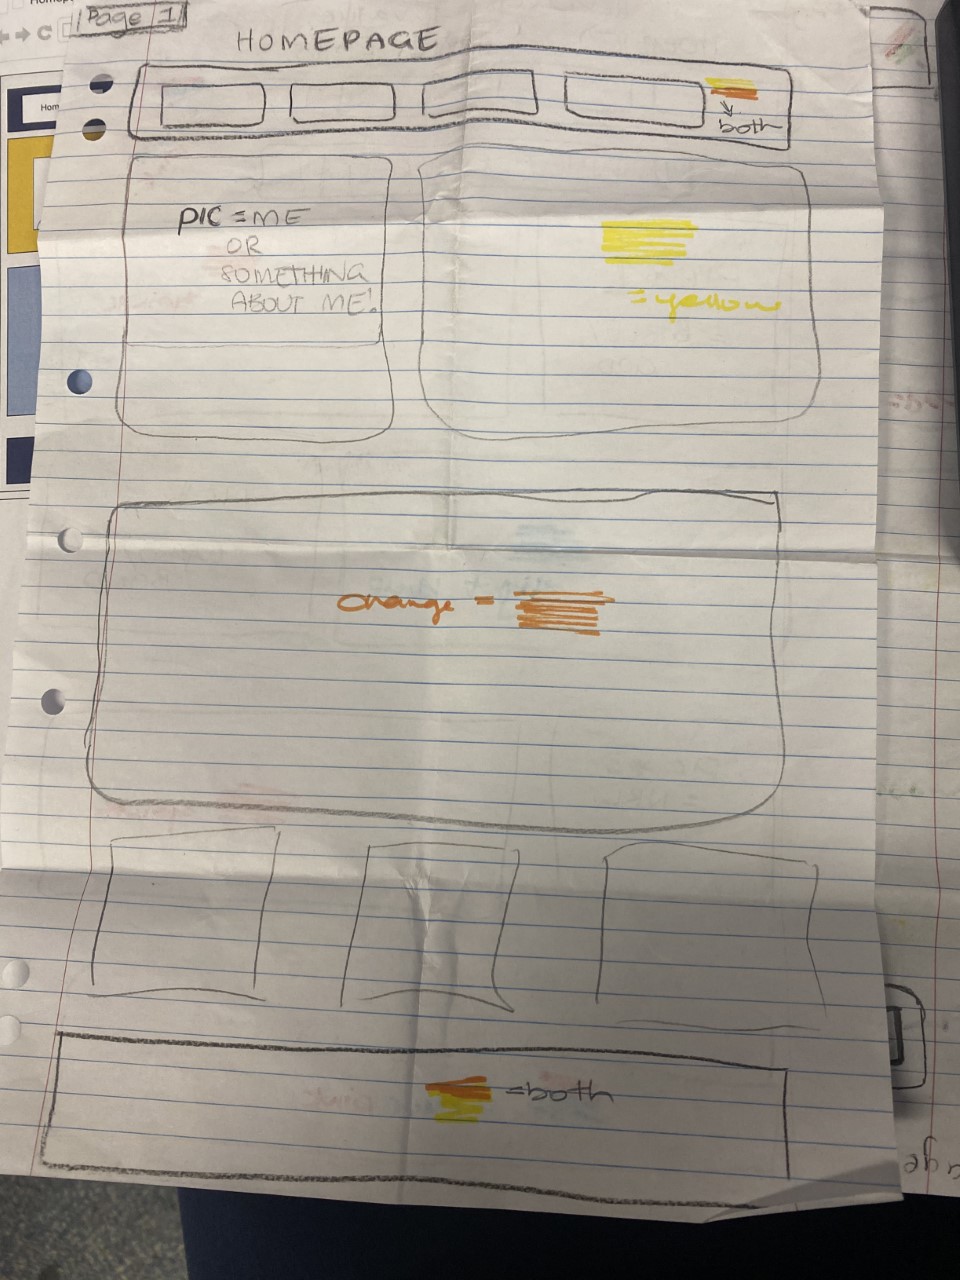 Page 1
HOMEPAGE
both
PIC = ME
OR
SOMETHING
ABOUT ME!
= yellow
orange =
= both
Hom